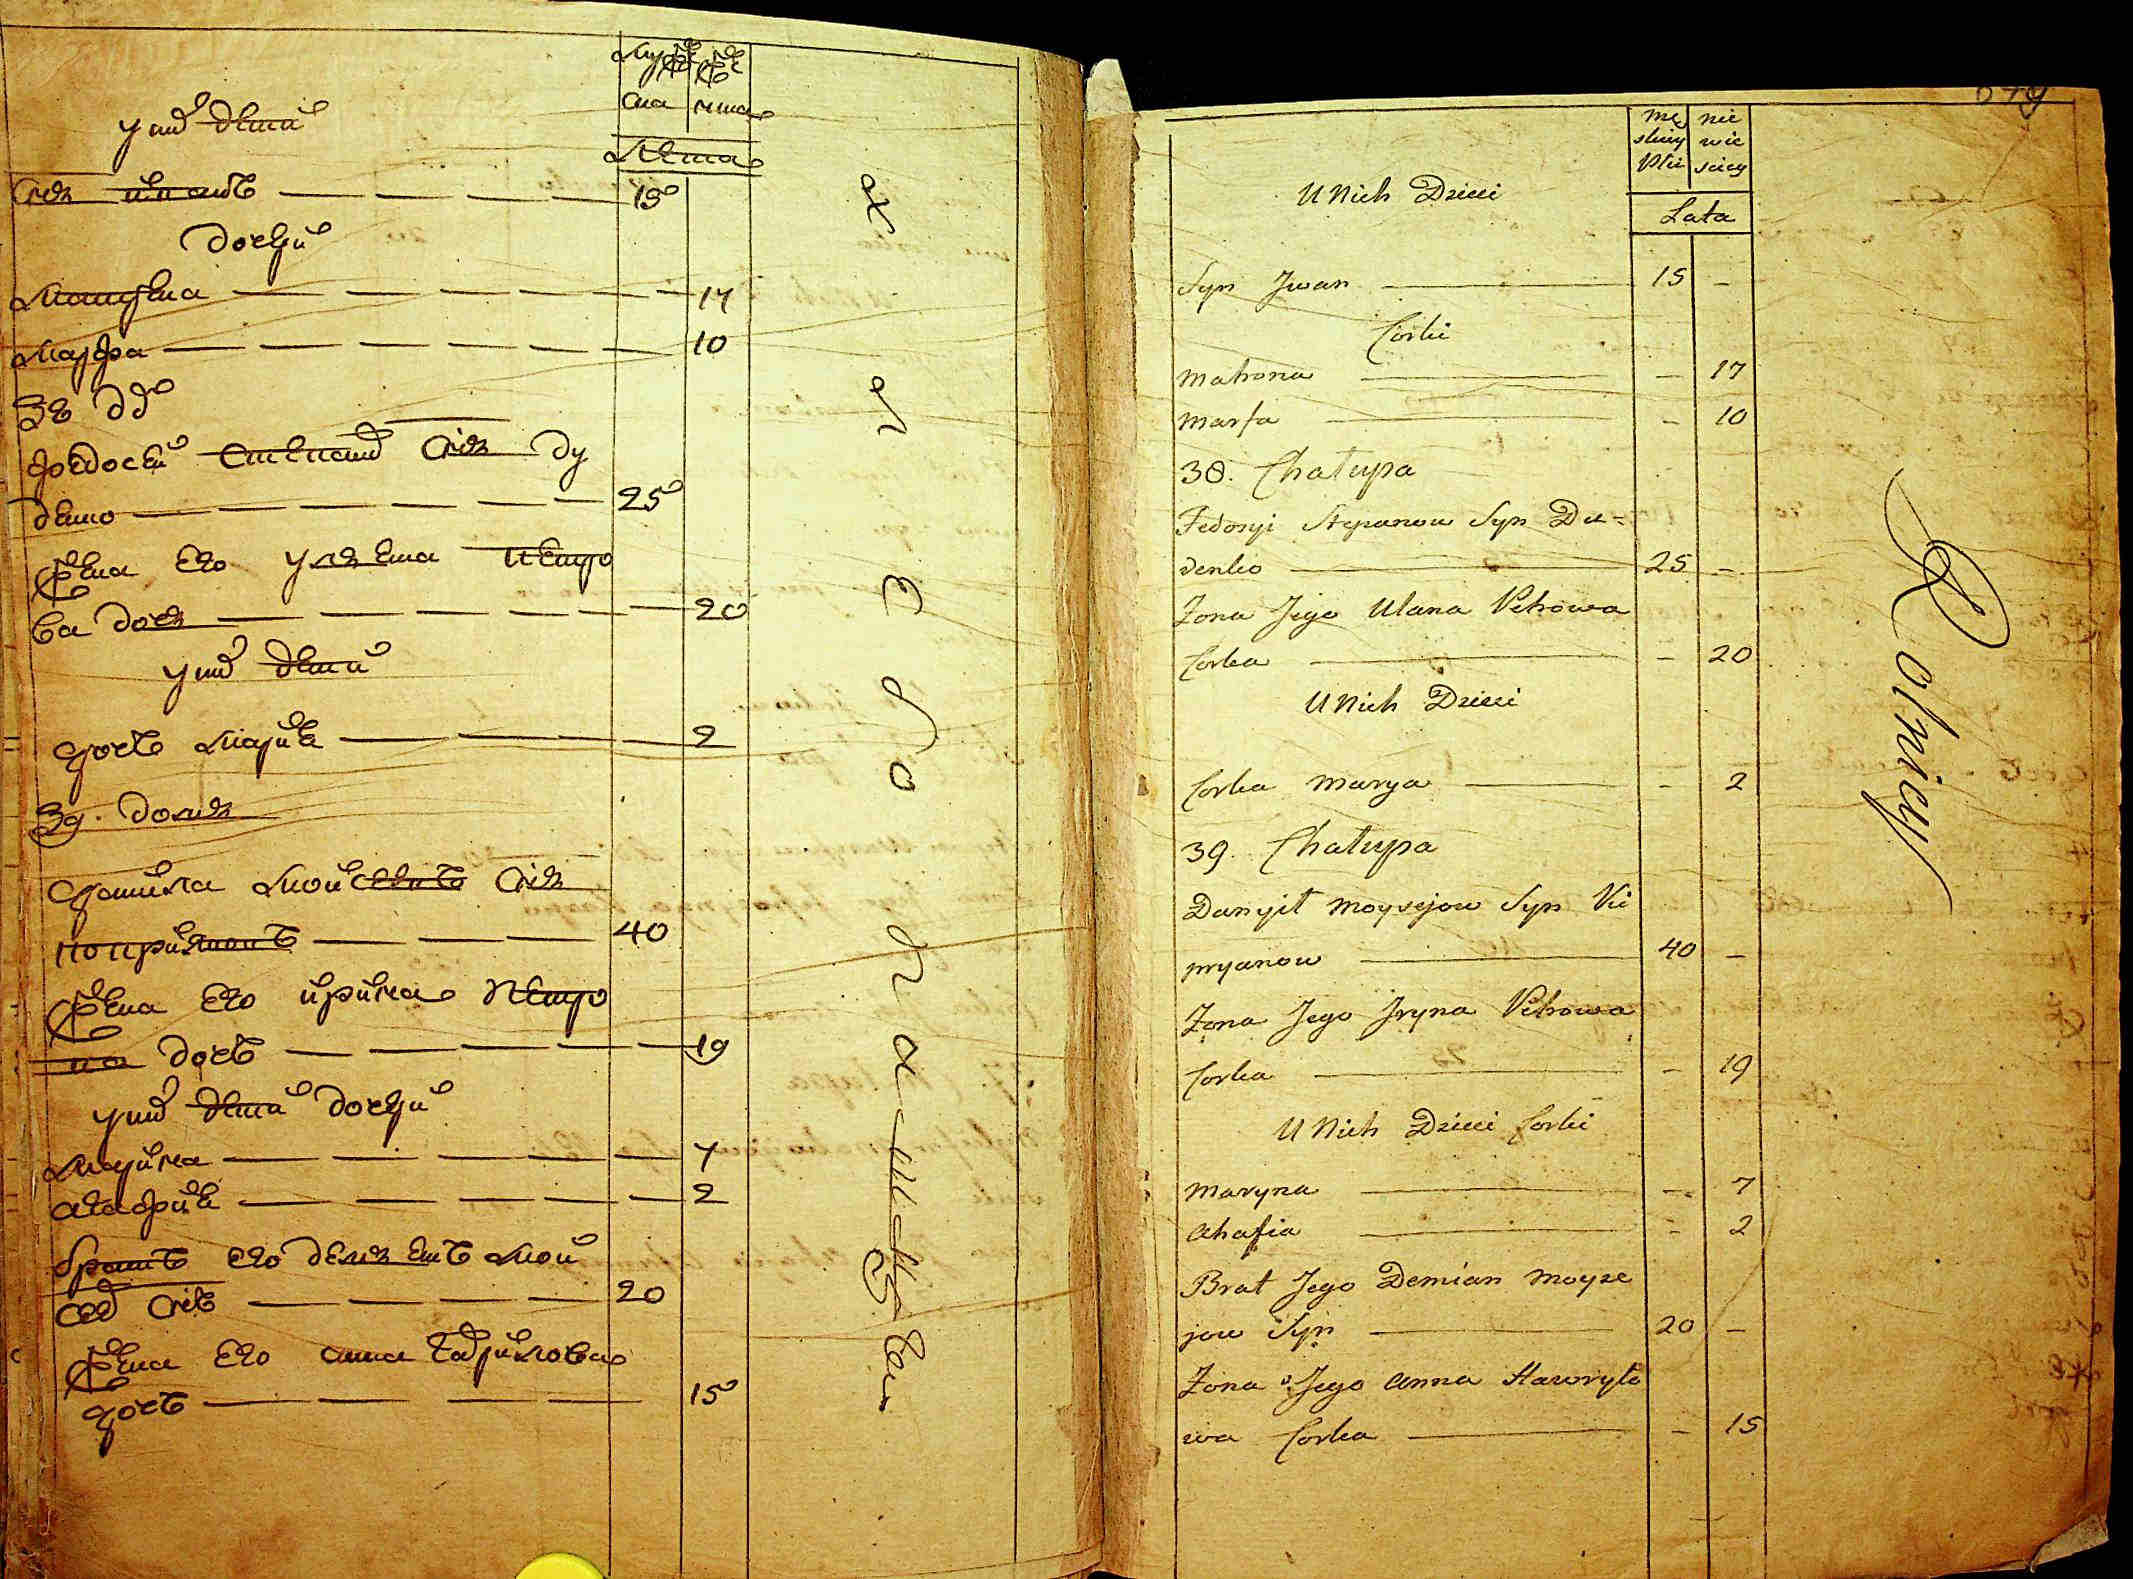 у них дети
сын иван 15
дочери
Матрена 17
Марфа 10
38 д
федосей степанов сын ду
денко 25
жена его уляна петро
ва дочь 20
у них дети
дочь Мария 2
39. домъ
Данила Мойсеев сын
40
жена его ирина петро
ва дочь 19
у них дети дочери
Марина 7
агафия 2
братъ его демян Мой
сеев сын 20
жена его анна гаврилова
дочь 15
Лета
U Nich Dzieci
męskiey płci
nie wie sciey
Lata
Syn Jwan 15 -
Corki
Matrona - 17
Marfa - 10
38. Chałupa
Fedosyi Stepanow Syn Du=
denko 25 -
Zona Jego Ulana Petrowa
Corka - 20
U Nich Dzieci
Corka Marya - 2
39. Chałupa
Danyił Moysejow Syn Ki
pryanow 40 -
Zona Jego Jryna Petrowa
Corka - 19
U Nich Dzieci Corki
Maryna - 7
Ahafia - 2
Brat Jego Demian Moyse
jow Syn 20 -
Zona Jego Anna Hawryło
wa Corka - 15
Rolnicy